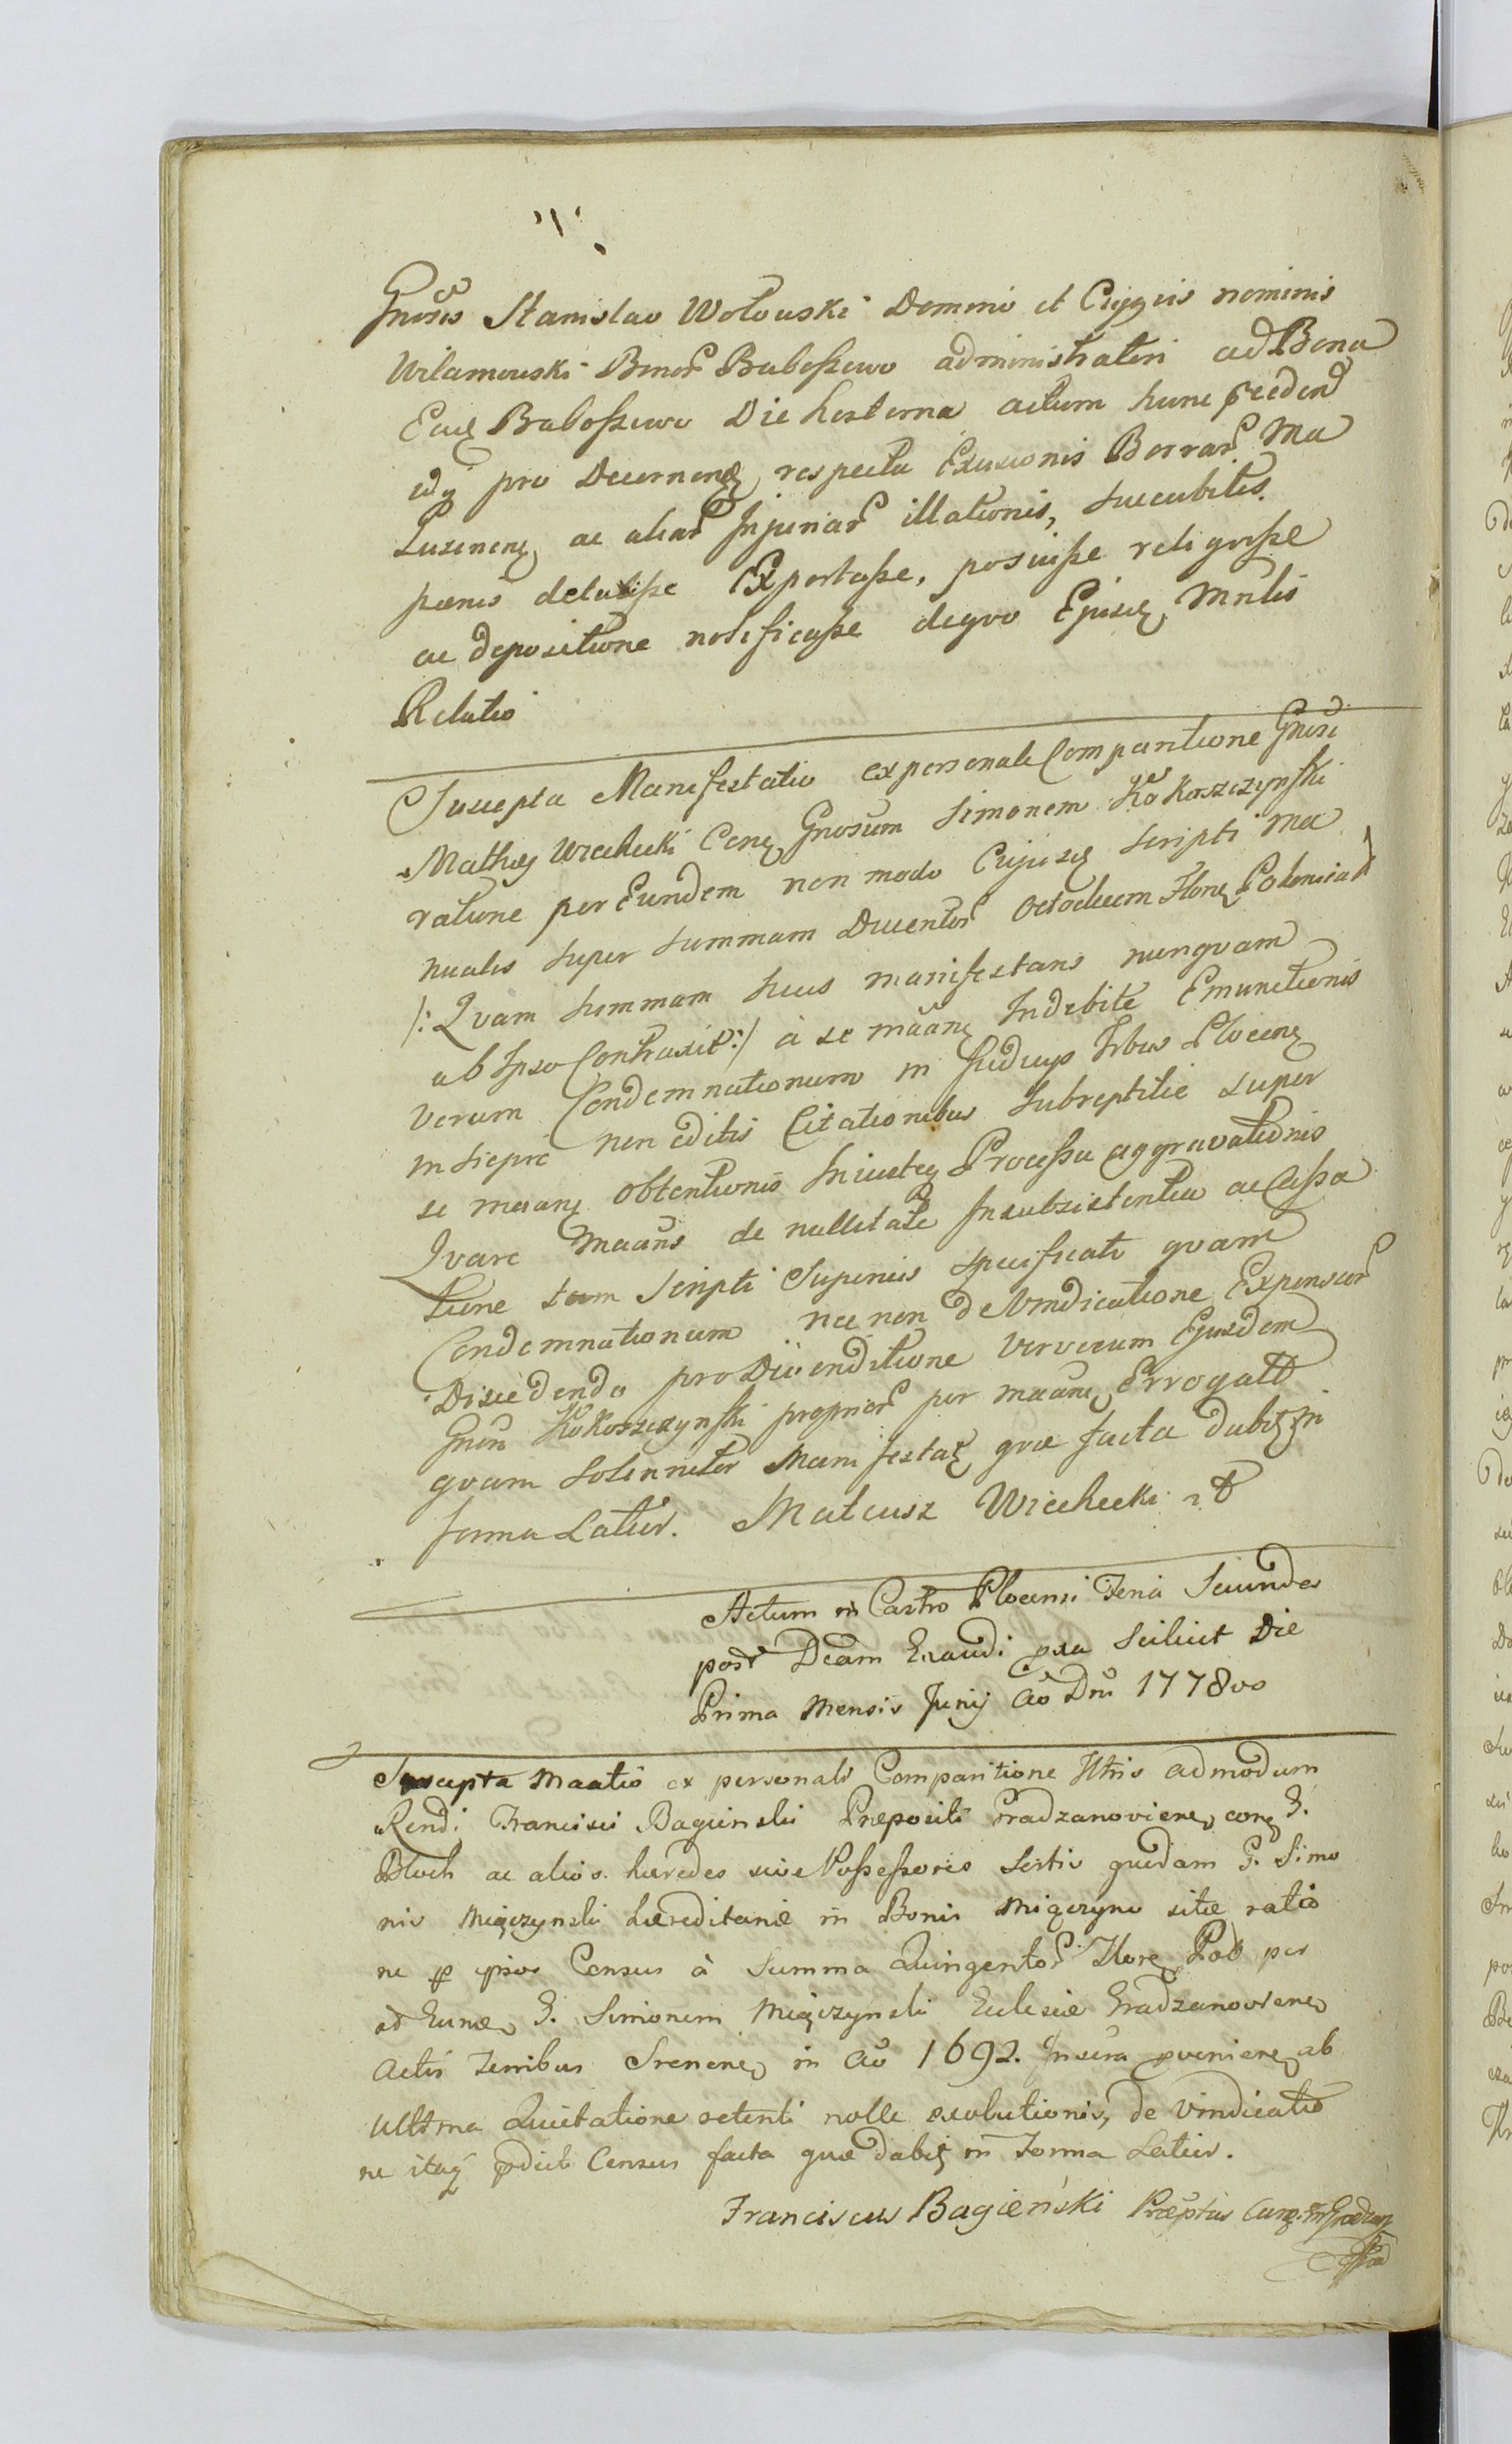 Gnosis Stanislao Wołowski Domino et Cujgvis nominis
Wilamowski Bonor Baboszewo administratori ad Bona
Eadę Baboszewo Die hesterna actum hunc pcedend
edy pro Decernendę respectu Exusionis Borrar Ma
Luzinenę ac aliar Injuriar illationis, succubitis
pænis detulisse Exportasse, posuisse religvisse
ac depositione notificasse deqvo Ejusdę Mnlis
Relatio
Suscepta Manifestatio ex personali Comparitione Gnosi
Mathęj Wiechecki Conę Gnosum Simonem Kokoszczynski
ratione per Eundem non modo Cujusdę Scripti Ma
nualis super summam Ducentor Octodecem Flonę Polonicał
/: Qvam summam suus manifestans nunqvam
ab Ipso Contraxit :/ à se maanę Indebite Emunctionis
verum Condemnationum in Judicijs Trbus Plocenę
m Siepre non editis Citationibus Subreptitie super
se maanę obtentionis Iniustęq Processu aggravationis
Qvare Maans de nullitate Insubsistentia ac Cassa
tione tam Scripti Superius specificati qvam
Condemnationum nec non de Vindicatione Expensar
Discedendo pro Divenditione Vervecum Ejusdem
Gnosi Kokoszczynski proprior per maanę Errogatt
qvam Solenniter Manifestatę qvæ facta dabitę in
forma Latior. Mateusz Wiechecki
Actum in Castro Plocensi Feria Secunda
post Dcam Exaudi pxa Scilicet Die
Prima Mensis Junij Ao Dni 1778vo
Suscepta Maatio ex personali Comparitione Illtris admodum
Rendi Francisci Bagienski Præpositi Gradzanovienę conę G.
Bloch ac alios hæredes sive Possessores Sortis quædam G. Simo
nis Miączynski hæreditariæ in Bonis Miączyno sitæ ratio
ne p ipsos Census à Summa Quingentor Florę Pol per
ad Eundę G. Simonem Miączynski Ecclesiæ Gradzanovienę
Actis Terribus Srenenę in Ao 1692. Inscra pvenienę ab
Ultima Quietatione retenti nolle exolutionis, de Vindicatio
ne itaq pdicti Census facta quæ dabitę in Forma Latior.
Franciscus Bagieński Præptus